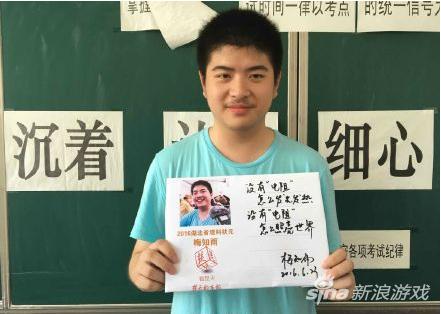 掌握
试时间一律以考点
的统一信号
沉着
细心
没有"电阻"
怎么发光发热
没有"电阻"
怎么照亮世界
2016湖北省理科状元
梅知雨
梅知雨
2016.6.23
各项考试纪律
sina新浪游戏